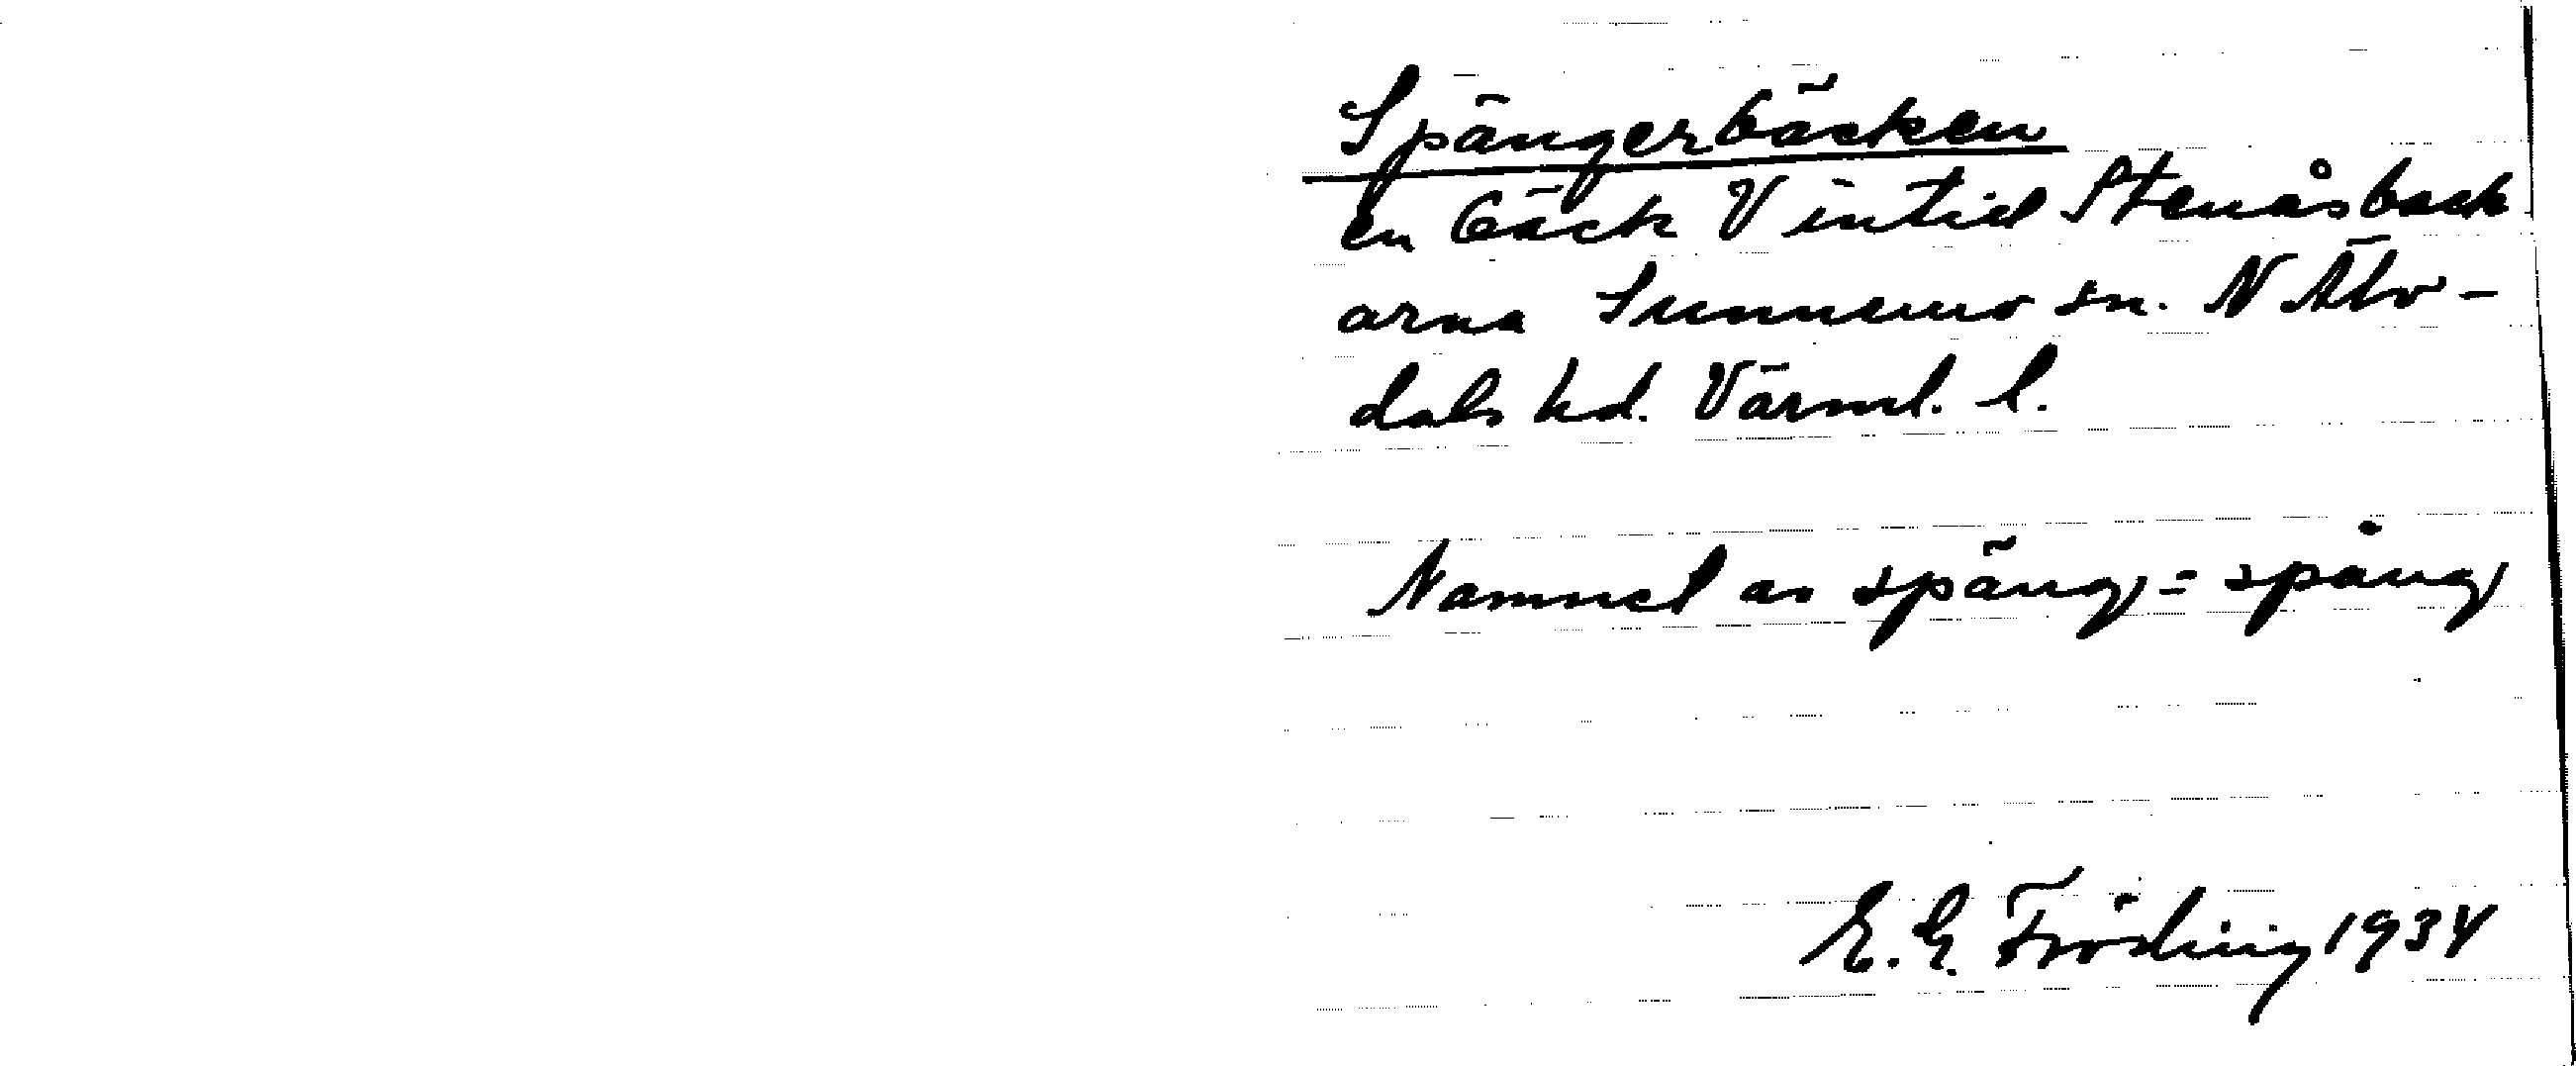 Spängerbäcken
en bäck V intill Stenåsback
arna Sunnemo sn. N Älv-
dals hd. Värml. l.
Namnet av späng = spång
E. G. Fröding 1934